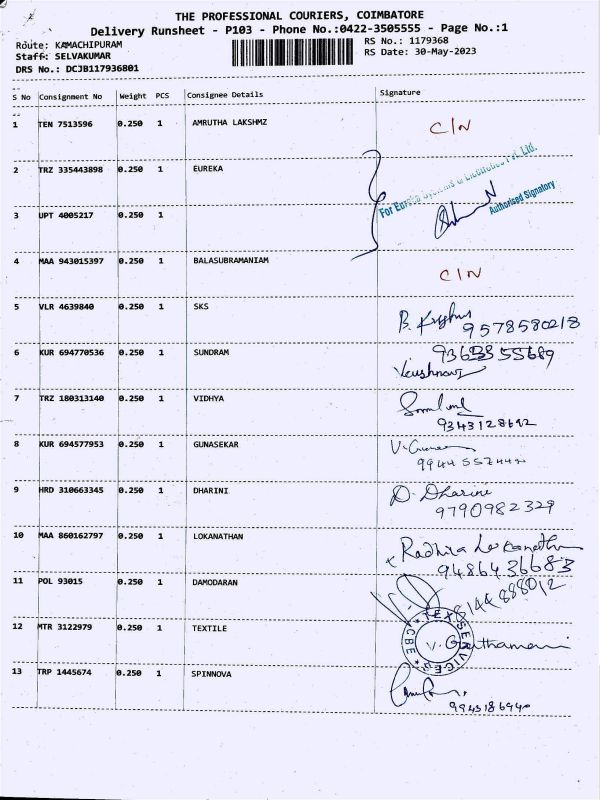 THE PROFESSIONAL COURIERS, COIMBATORE
Delivery Runsheet - P103 - Phone No.:0422-3505555 - Page No.:1
Route: KAMACHIPURAM RS No.: 1179368
Staff: SELVAKUMAR RS Date: 30-May-2023
DRS No.: DCJB117936801
S No Consignment No Weight PCS Consignee Details Signature
1 TEN 7513596 0.250 1 AMRUTHA LAKSHMZ C/N
2 TRZ 335443898 0.250 1 EUREKA
For Eureka Systems & Electronics Pvt. Ltd.
Authorised Signatory
3 UPT 4005217 0.250 1
4 MAA 943015397 0.250 1 BALASUBRAMANIAM C/N
5 VLR 4639840 0.250 1 SKS B.
9578580218
6 KUR 694770536 0.250 1 SUNDRAM
Vaishnavi
7 TRZ 180313140 0.250 1 VIDHYA
9343128692
8 KUR 694577953 0.250 1 GUNASEKAR V.
9 HRD 310663345 0.250 1 DHARINI D. Dharini
9790982329
10 MAA 860162797 0.250 1 LOKANATHAN Radhika Lokanathan
9486436683
11 POL 93015 0.250 1 DAMODARAN
8144888012
12 MTR 3122979 0.250 1 TEXTILE V. Gowthamani
TEX SERVICES
CBE
13 TRP 1445674 0.250 1 SPINNOVA
9943186940